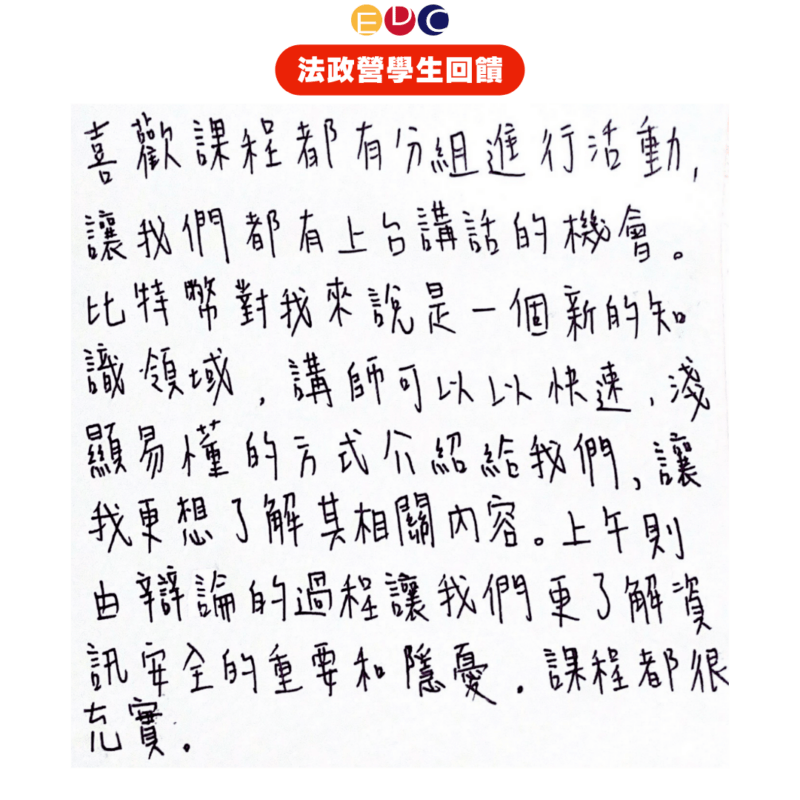 EDC
法政營學生回饋
喜歡課程都有分組進行活動,
讓我們都有上台講話的機會。
比特幣對我來說是一個新的知
識領域,講師可以以快速、淺
顯易懂的方式介紹給我們,讓
我更想了解其相關內容。上午則
由辯論的過程讓我們更了解資
訊安全的重要和隱憂。課程都很
充實。